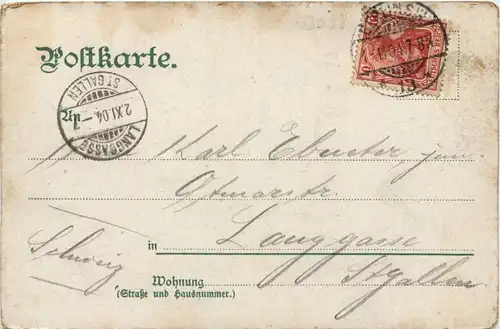 Postkarte.
ST GALLEN
2.XI.04.-7
LANGGASSE
An
10
Karl Ebneter jun
Otmarstr.
in Langgasse
Schweiz
St Gallen
Wohnung
(Straße und Hausnummer.)